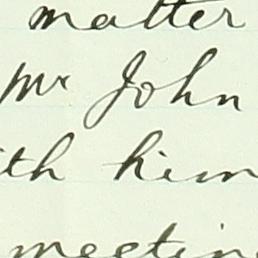 matter
Mr John
ith him
meeting